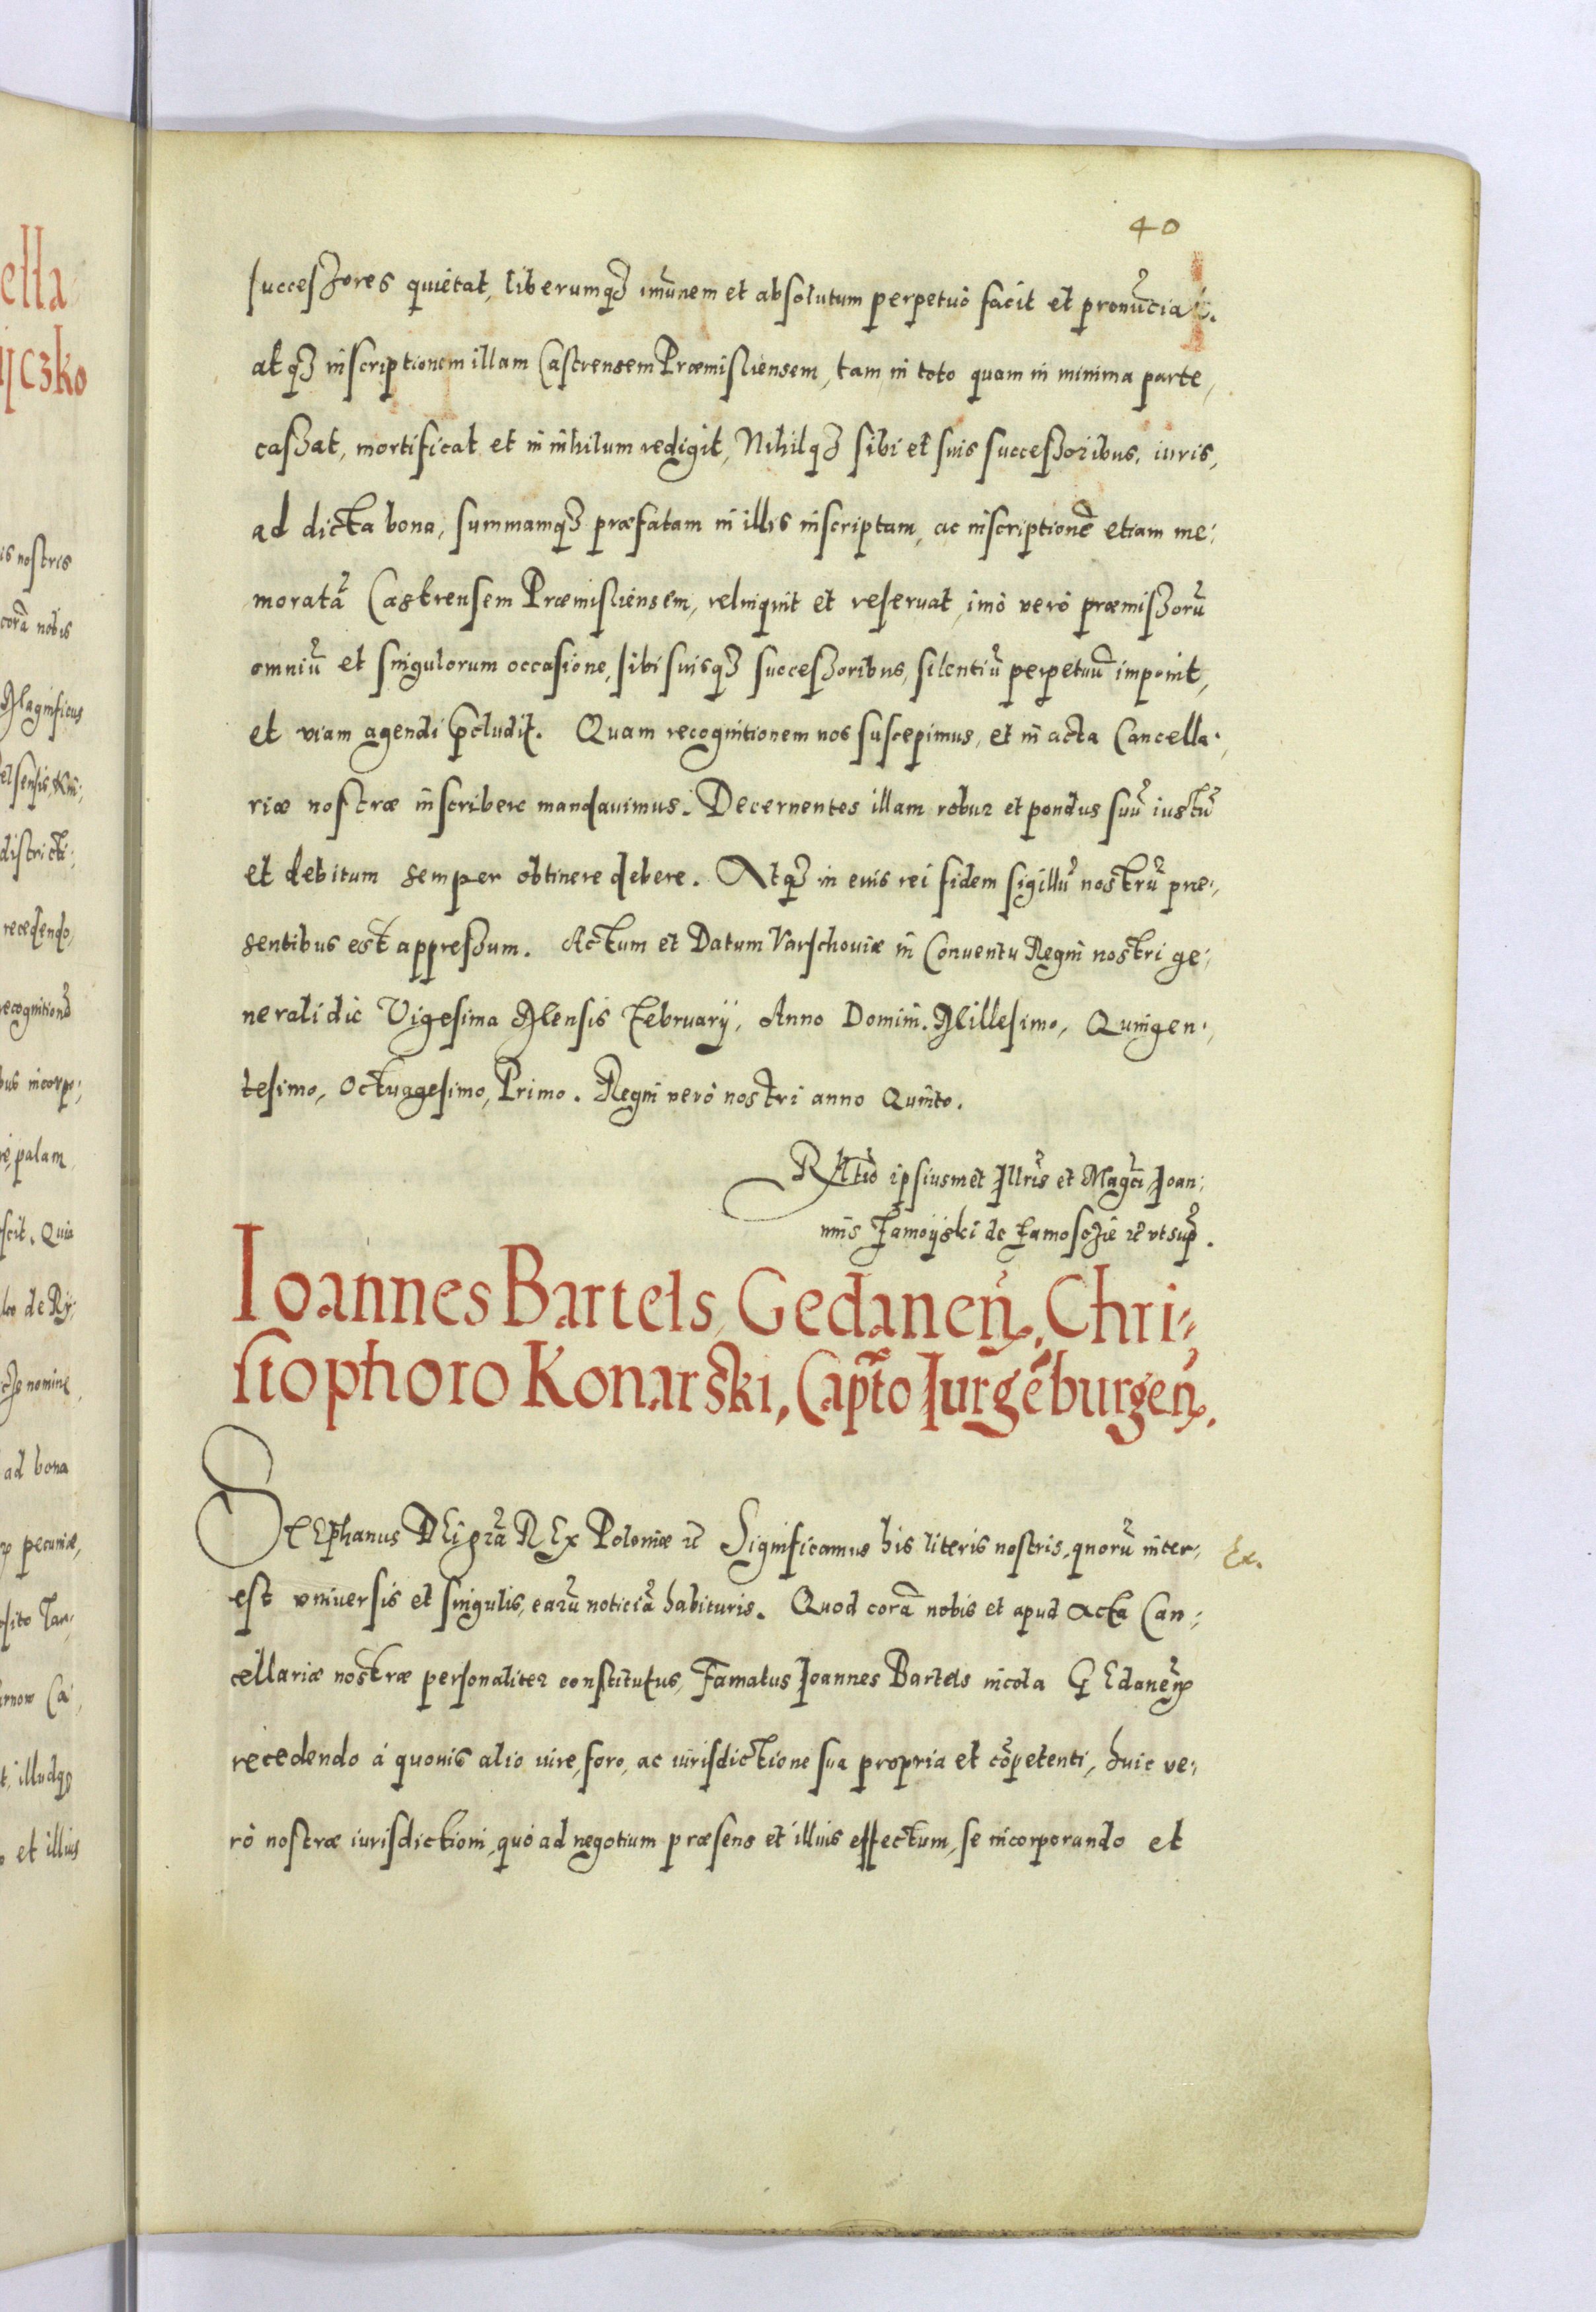 40
successores quietat, liberumqꝫ imũnem et absolutum perpetuò facit et pronũciat.
atqꝫ inscriptionem illam Castrensem Præmisliensem, tam in toto quam in minima parte,
cassat, mortificat et in nihilum redigit, Nihilqꝫ sibi et suis successoribus, iuris,
ad dicta bona, summamqꝫ præfatam in illis inscriptam, ac inscriptionẽ etiam me:
moratã Castrensem Præmisliensem, relinquit et reseruat, imò verò præmissorũ
omniũ et singulorum occasione, sibi suisqꝫ successoribus, silentiũ perpetuũ imponit,
et viam agendi p̃cludit. Quam recognitionem nos suscepimus, et in acta Cancella:
riæ nostræ inscribere mandauimus. Decernentes illam robur et pondus suũ iustũ
et debitum semper obtinere debere. Atqꝫ in euis rei fidem sigillũ nostrũ præ:
sentibus est appressum. Actum et Datum Varschoviæ in Conuentu Regni nostri ge:
nerali die Vigesima Mensis February, Anno Domini. Millesimo, Quingen:
tesimo, Octuagesimo, Primo. Regni verò nostri anno Quinto.
RƖtio ipsiusmet Illris et Magci Ioan:
nis Zamoÿski de Zamosczie ꝛc vt sup̃.
Ioannes Bartels, Gedaneñ, Chri:
stophoro Konarski, Capto Iurgẽburgeñ.
StEphanus DEi grã REx Poloniæ ꝛc Significamus his literis nostris, quorũ inter:
Ex.
est vniuersis et singulis, earũ noticiã habituris. Quod corã nobis et apud Acta Can:
cellariæ nostræ personaliter constitutus, Famatus Ioannes Bartels incola GEdaneñ
recedendo à quouis alio iure, foro, ac iurisdictione sua propria et cõpetenti, huic ve:
rò nostræ iurisdictioni, quò ad negotium præsens et illius effectum, se incorporando et